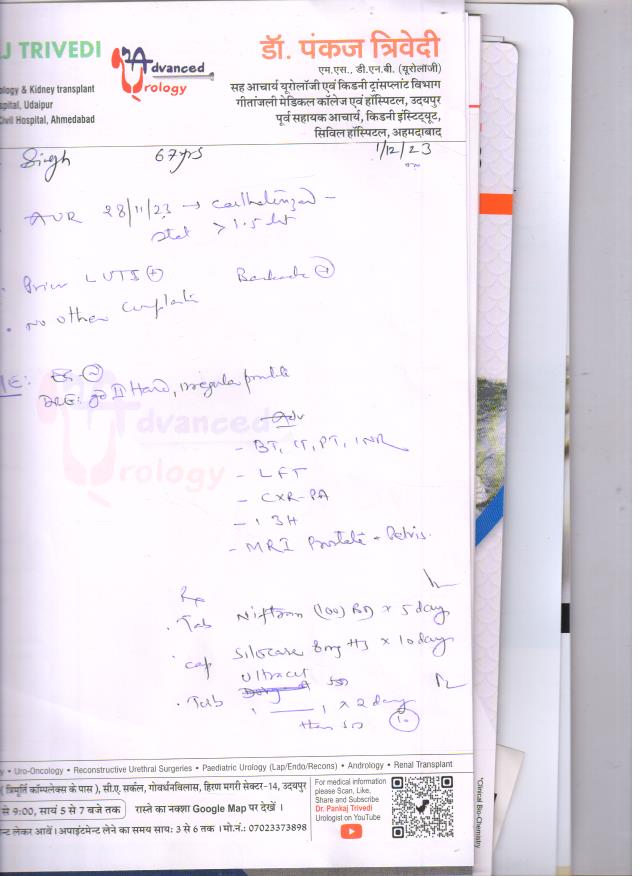 J TRIVEDI
Advanced
Urology
डॉ. पंकज त्रिवेदी
एम.एस., डी.एन.बी. (यूरोलॉजी)
ology & Kidney transplant
सह आचार्य यूरोलॉजी एवं किडनी ट्रांसप्लांट विभाग
spital, Udaipur
गीतांजली मेडिकल कॉलेज एवं हॉस्पिटल, उदयपुर
Civil Hospital, Ahmedabad
पूर्व सहायक आचार्य, किडनी इंस्टिट्यूट,
सिविल हॉस्पिटल, अहमदाबाद
Singh 67 yrs 1/12/23
AUR 28/11/23 → Catheterized -
> 1.5 lit
Prior LUTS (+) Backache (+)
No other complaints
/E:
DRE: gd II Hard, irregular prostate
Advanced
Urology
Adv
- BT, CT, PT, INR
- LFT
- CXR-PA
- MRI Prostate + Pelvis.
Rx
Tab Niftran (100) BD x 5 days
Cap Silocare 8mg HS x 10 days
Ultracet
Tab 1 — 1 x 2 days
then SOS (10)
y • Uro-Oncology • Reconstructive Urethral Surgeries • Paediatric Urology (Lap/Endo/Recons) • Andrology • Renal Transplant
( त्रिमूर्ति कॉम्पलेक्स के पास ), सी.ए. सर्कल, गोवर्धनविलास, हिरण मगरी सेक्टर-14, उदयपुर
से 9:00, सायं 5 से 7 बजे तक रास्ते का नक्शा Google Map पर देखें ।
न्ट लेकर आवें। अपाइंटमेन्ट लेने का समय सायः 3 से 6 तक । मो.नं.: 07023373898
For medical information
please Scan, Like,
Share and Subscribe
Dr. Pankaj Trivedi
Urologist on YouTube
*Clinical Bio-Chemistry